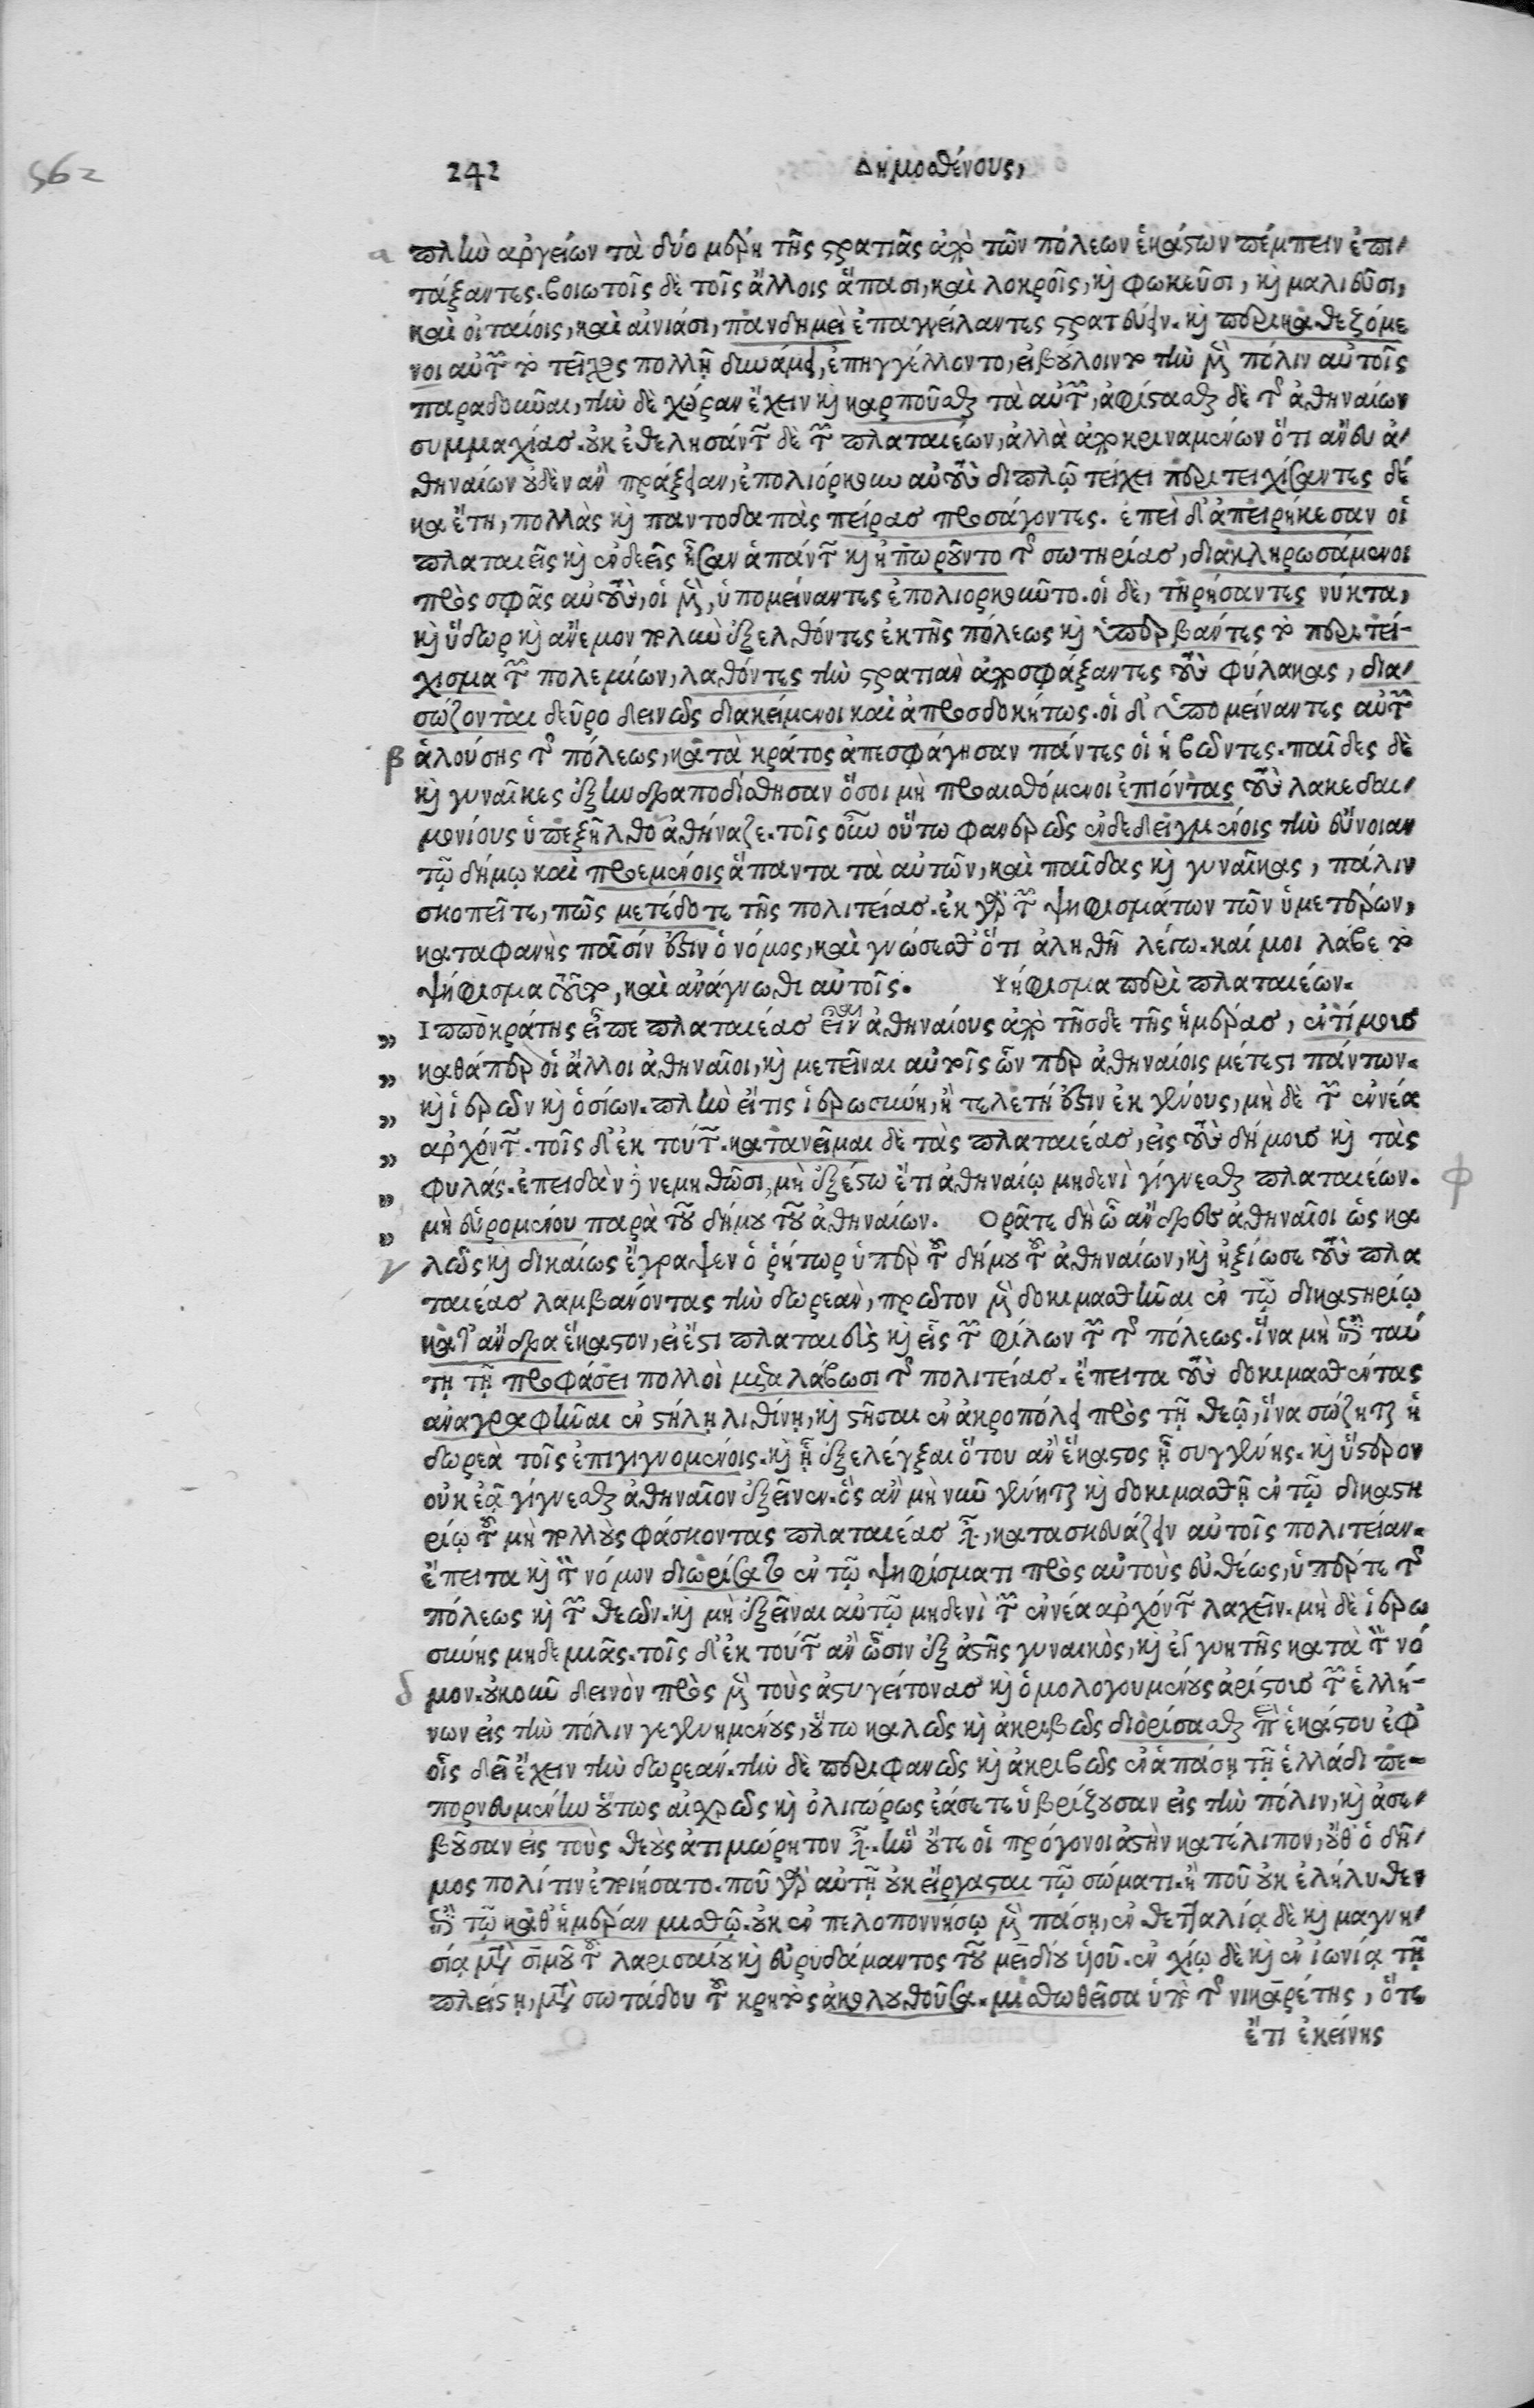 562
242 Δημοσθένους,
α πλὴν ἀργείων τὰ δύο μέρη τῆς στρατιᾶς ἀπὸ τῶν πόλεων ἑκάστων πέμπειν ἐπι-
τάξαντες. βοιωτοῖς δὲ τοῖς ἄλλοις ἅπασι, καὶ λοκροῖς, καὶ φωκεῦσι, καὶ μαλιεῦσι,
καὶ οἰταίοις, καὶ αἰνιάσι, πανδημεὶ ἐπαγγείλαντες στρατεύειν. καὶ περικαθεζόμε
νοι αὐτῶν τὸ τεῖχος πολλῇ δυνάμει, ἐπηγγέλλοντο, εἰ βούλοιντο τὴν μὲν πόλιν αὐτοῖς
παραδοῦναι, τὴν δὲ χώραν ἔχειν καὶ καρποῦσθαι τὰ αὐτῶν, ἀφίστασθαι δὲ τῆς ἀθηναίων
συμμαχίας. οὐκ ἐθελησάντων δὲ τῶν πλαταιέων, ἀλλὰ ἀποκριναμένων ὅτι ἄνευ ἀ-
θηναίων οὐδὲν ἂν πράξειαν, ἐπολιόρκουν αὐτοὺς διπλῷ τείχει περιτειχίσαντες δέ
κα ἔτη, πολλὰς καὶ παντοδαπὰς πείρας προσάγοντες. ἐπεὶ δ' ἀπειρήκεσαν οἱ
πλαταιεῖς καὶ ἐνδεεῖς ἦσαν ἁπάντων καὶ ἠποροῦντο τῆς σωτηρίας, διακληρωσάμενοι
πρὸς σφᾶς αὐτοὺς, οἱ μὲν, ὑπομείναντες ἐπολιορκοῦντο. οἱ δὲ, τηρήσαντες νύκτα,
καὶ ὕδωρ καὶ ἄνεμον πολὺν ἐξελθόντες ἐκ τῆς πόλεως καὶ ὑπερβάντες τὸ περιτεί-
χισμα τῶν πολεμίων, λαθόντες τὴν στρατιὰν ἀποσφάξαντες τοὺς φύλακας, δια-
σώζονται δεῦρο δεινῶς διακείμενοι καὶ ἀπροσδοκήτως. οἱ δ' ὑπομείναντες αὐτῶν
β ἁλούσης τῆς πόλεως, κατὰ κράτος ἀπεσφάγησαν πάντες οἱ ἡβῶντες. παῖδες δὲ
καὶ γυναῖκες ἐξηνδραποδίσθησαν ὅσοι μὴ προαισθόμενοι ἐπιόντας τοὺς λακεδαι-
μονίους ὑπεξῆλθον ἀθήναζε. τοῖς οὖν οὕτω φανερῶς ἐνδεδειγμένοις τὴν εὔνοιαν
τῷ δήμῳ καὶ προεμένοις ἅπαντα τὰ αὐτῶν, καὶ παῖδας καὶ γυναῖκας, πάλιν
σκοπεῖτε, πῶς μετέδοτε τῆς πολιτείας. ἐκ γὰρ τῶν ψηφισμάτων τῶν ὑμετέρων,
καταφανὴς πᾶσίν ἐστιν ὁ νόμος, καὶ γνώσεσθ' ὅτι ἀληθῆ λέγω. καί μοι λάβε τὸ
ψήφισμα τοῦτο, καὶ ἀνάγνωθι αὐτοῖς. Ψήφισμα περὶ πλαταιέων.
„ Ἱπποκράτης εἶπε πλαταιέας εἶναι ἀθηναίους ἀπὸ τῆσδε τῆς ἡμέρας, ἐντίμους
„ καθάπερ οἱ ἄλλοι ἀθηναῖοι, καὶ μετεῖναι αὐτοῖς ὧν περ ἀθηναίοις μέτεστι πάντων.
„ καὶ ἱερῶν καὶ ὁσίων. πλὴν εἴ τις ἱερωσύνη, ἢ τελετή ἐστιν ἐκ γένους, μὴ δὲ τῶν ἐννέα
„ ἀρχόντων. τοῖς δ' ἐκ τούτων. κατανεῖμαι δὲ τὰς πλαταιέας, εἰς τοὺς δήμους καὶ τὰς
„ φυλάς. ἐπειδὰν δὲ νεμηθῶσι, μὴ ἐξέστω ἔτι ἀθηναίῳ μηδενὶ γίγνεσθαι πλαταιέων. φ
„ μὴ εὑρομένου παρὰ τοῦ δήμου τοῦ ἀθηναίων. Ὁρᾶτε δὴ ὦ ἄνδρες ἀθηναῖοι ὡς κα
γ λῶς καὶ δικαίως ἔγραψεν ὁ ῥήτωρ ὑπὲρ τοῦ δήμου τοῦ ἀθηναίων, καὶ ἠξίωσε τοὺς πλα
ταιέας λαμβανόντας τὴν δωρεὰν, πρῶτον μὲν δοκιμασθῆναι ἐν τῷ δικαστηρίῳ
κατ' ἄνδρα ἕκαστον, εἰ ἔστι πλαταιεὺς καὶ εἷς τῶν φίλων τῶν τῆς πόλεως. ἵνα μὴ ἐπὶ ταύ
τῃ τῇ προφάσει πολλοὶ μεταλάβωσι τῆς πολιτείας. ἔπειτα τοὺς δοκιμασθέντας
ἀναγραφῆναι ἐν στήλῃ λιθίνῃ, καὶ στῆσαι ἐν ἀκροπόλει πρὸς τῇ θεῷ, ἵνα σώζηται ἡ
δωρεὰ τοῖς ἐπιγιγνομένοις. καὶ ᾖ ἐξελέγξαι ὅτου ἂν ἕκαστος ᾖ συγγενής. καὶ ὕστερον
οὐκ ἐᾷ γίγνεσθαι ἀθηναῖον ἐξεῖναι. ὃς ἂν μὴ νῦν γένηται καὶ δοκιμασθῇ ἐν τῷ δικαστη
ρίῳ τοῦ μὴ πολλοὺς φάσκοντας πλαταιέας εἶναι, κατασκευάζειν αὐτοῖς πολιτείαν.
ἔπειτα καὶ τὸν νόμον διωρίσατο ἐν τῷ ψηφίσματι πρὸς αὐτοὺς εὐθέως, ὑπέρ τε τῆς
πόλεως καὶ τῶν θεῶν. καὶ μὴ ἐξεῖναι αὐτῷ μηδενὶ τῶν ἐννέα ἀρχόντων λαχεῖν. μὴ δὲ ἱερω
σύνης μηδεμιᾶς. τοῖς δ' ἐκ τούτων ἂν ὦσιν ἐξ ἀστῆς γυναικὸς, καὶ ἐγγυητῆς κατὰ τὸν νό
δ μον. οὐκοῦν δεινὸν πρὸς μὲν τοὺς ἀστυγείτονας καὶ ὁμολογουμένους ἀρίστους τῶν ἑλλή-
νων εἰς τὴν πόλιν γεγενημένους, οὕτω καλῶς καὶ ἀκριβῶς διορίσασθαι περὶ ἑκάστου ἐφ'
οἷς δεῖ ἔχειν τὴν δωρεάν. τὴν δὲ περιφανῶς καὶ ἀκριβῶς ἐν ἁπάσῃ τῇ ἑλλάδι πε-
πορνευμένην οὕτως αἰσχρῶς καὶ ὀλιγώρως ἐάσετε ὑβρίζουσαν εἰς τὴν πόλιν, καὶ ἀσε-
βοῦσαν εἰς τοὺς θεοὺς ἀτιμώρητον εἶναι. ἣν οὔτε οἱ πρόγονοι ἀστὴν κατέλιπον, οὔθ' ὁ δῆ-
μος πολίτιν ἐποιήσατο. ποῦ γὰρ αὐτῇ οὐκ εἴργασται τῷ σώματι. ἢ ποῦ οὐκ ἐλήλυθεν
ἐπὶ τῷ καθ' ἡμέραν μισθῷ. οὐκ ἐν πελοποννήσῳ μὲν πάσῃ, ἐν θετταλίᾳ δὲ καὶ μαγνη-
σίᾳ μετὰ σίμου τοῦ λαρισαίου καὶ εὐρυδάμαντος τοῦ μειδίου υἱοῦ. ἐν χίῳ δὲ καὶ ἐν ἰωνίᾳ τῇ
πλείστῃ, μετὰ σωτάδου τοῦ κρητὸς ἀκολουθοῦσα. μισθωθεῖσα ὑπὸ τῆς νικαρέτης, ὅτε
ἔτι ἐκείνης